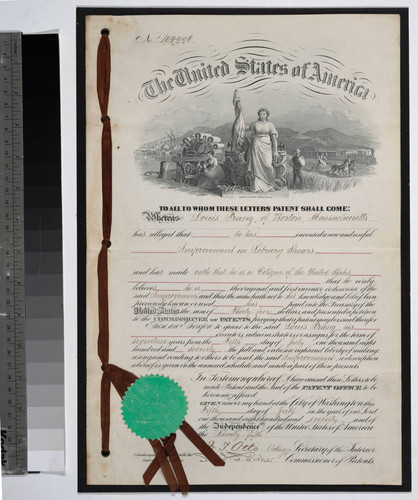 The United States of America
TO ALL TO WHOM THESE LETTERS PATENT SHALL COME:
Whereas Louis Prang, of Boston, Massachusetts
has alleged that he has invented a new and useful
Improvement in Library Shears
and has made oath that he is a Citizen of the United States
that he verily
believes he is the original and first inventor or discoverer of the
said Improvement and that the same hath not to his knowledge and belief been
previously known or used has paid into the Treasury of the
United States the sum of Thirty five dollars and presented a petition
to the COMMISSIONER OF PATENTS
These are Therefore to grant to the said Louis Prang, his
for the term of
seventeen years from the fifth day of July one thousand eight
hundred and seventy the full and exclusive right and liberty of making
using and vending to others to be used, the said Improvement a description
whereof is given in the annexed schedule and made a part of these presents.
In Testimony whereof I have caused these Letters to
be made Patent and the Seal of the PATENT OFFICE to be
hereunto affixed
GIVEN under my hand at the City of Washington this
fifth day of July in the year of our Lord
one thousand eight hundred and seventy and of
the Independence of the United States of America
the Ninety fifth
Acting Secretary of the Interior
Commissioner of Patents.